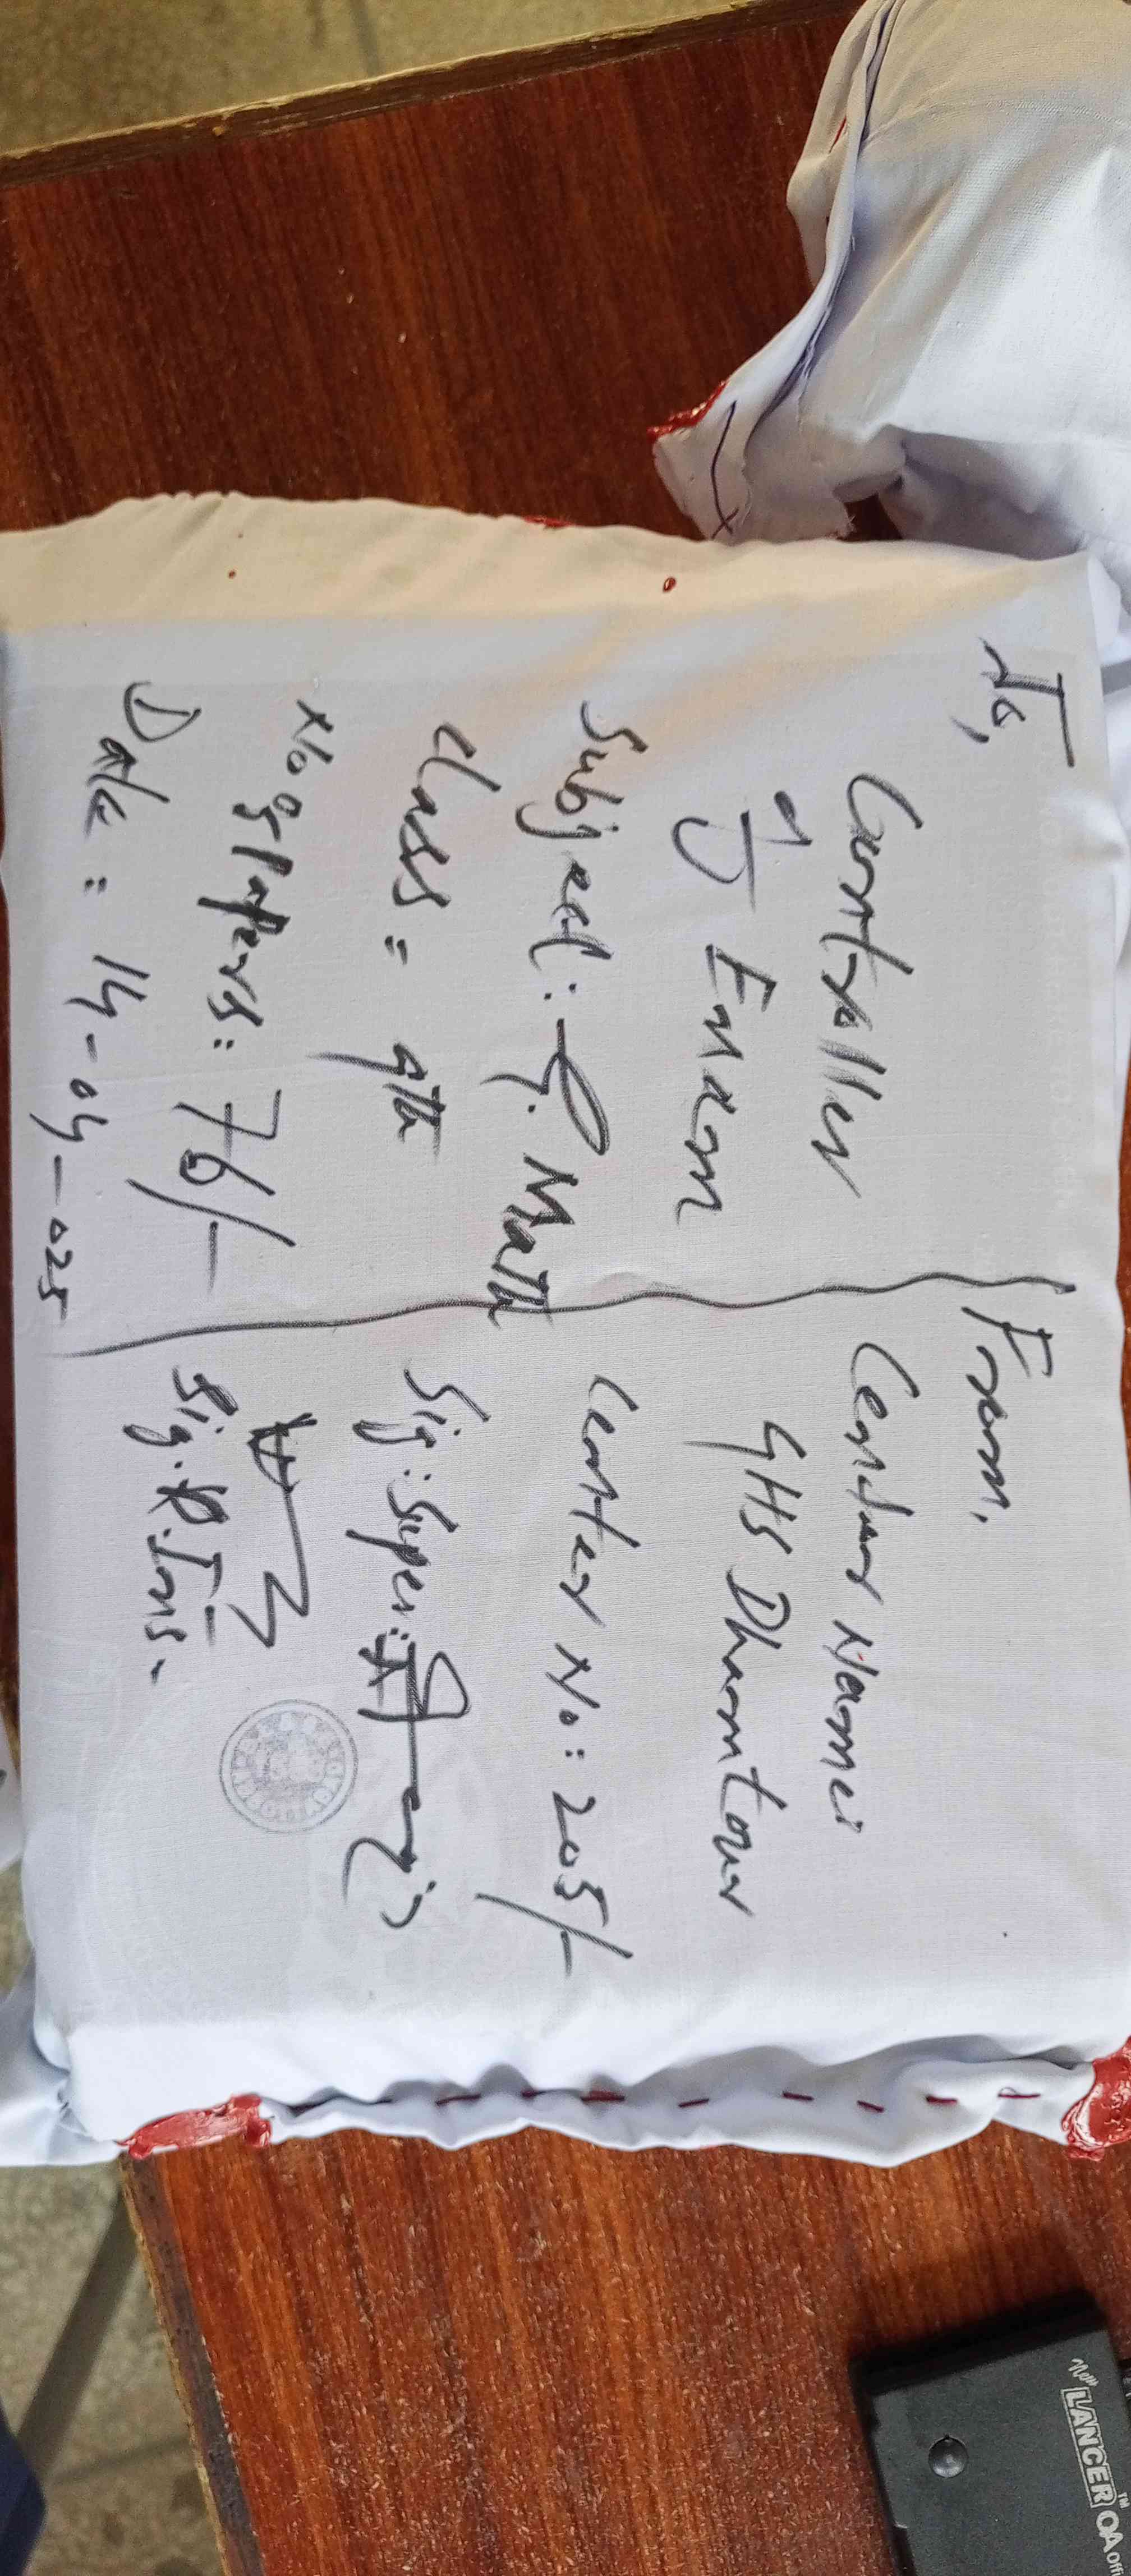 To,
Controller
of Exam
Subject: G. Math
class = 9th
No of papers: 76/-
Date = 14-04-025
From,
Center Name:
GHS Dhamtour
Center No: 205/-
Sig: Super:
Sig. R. Ins-
LANCER™ OA